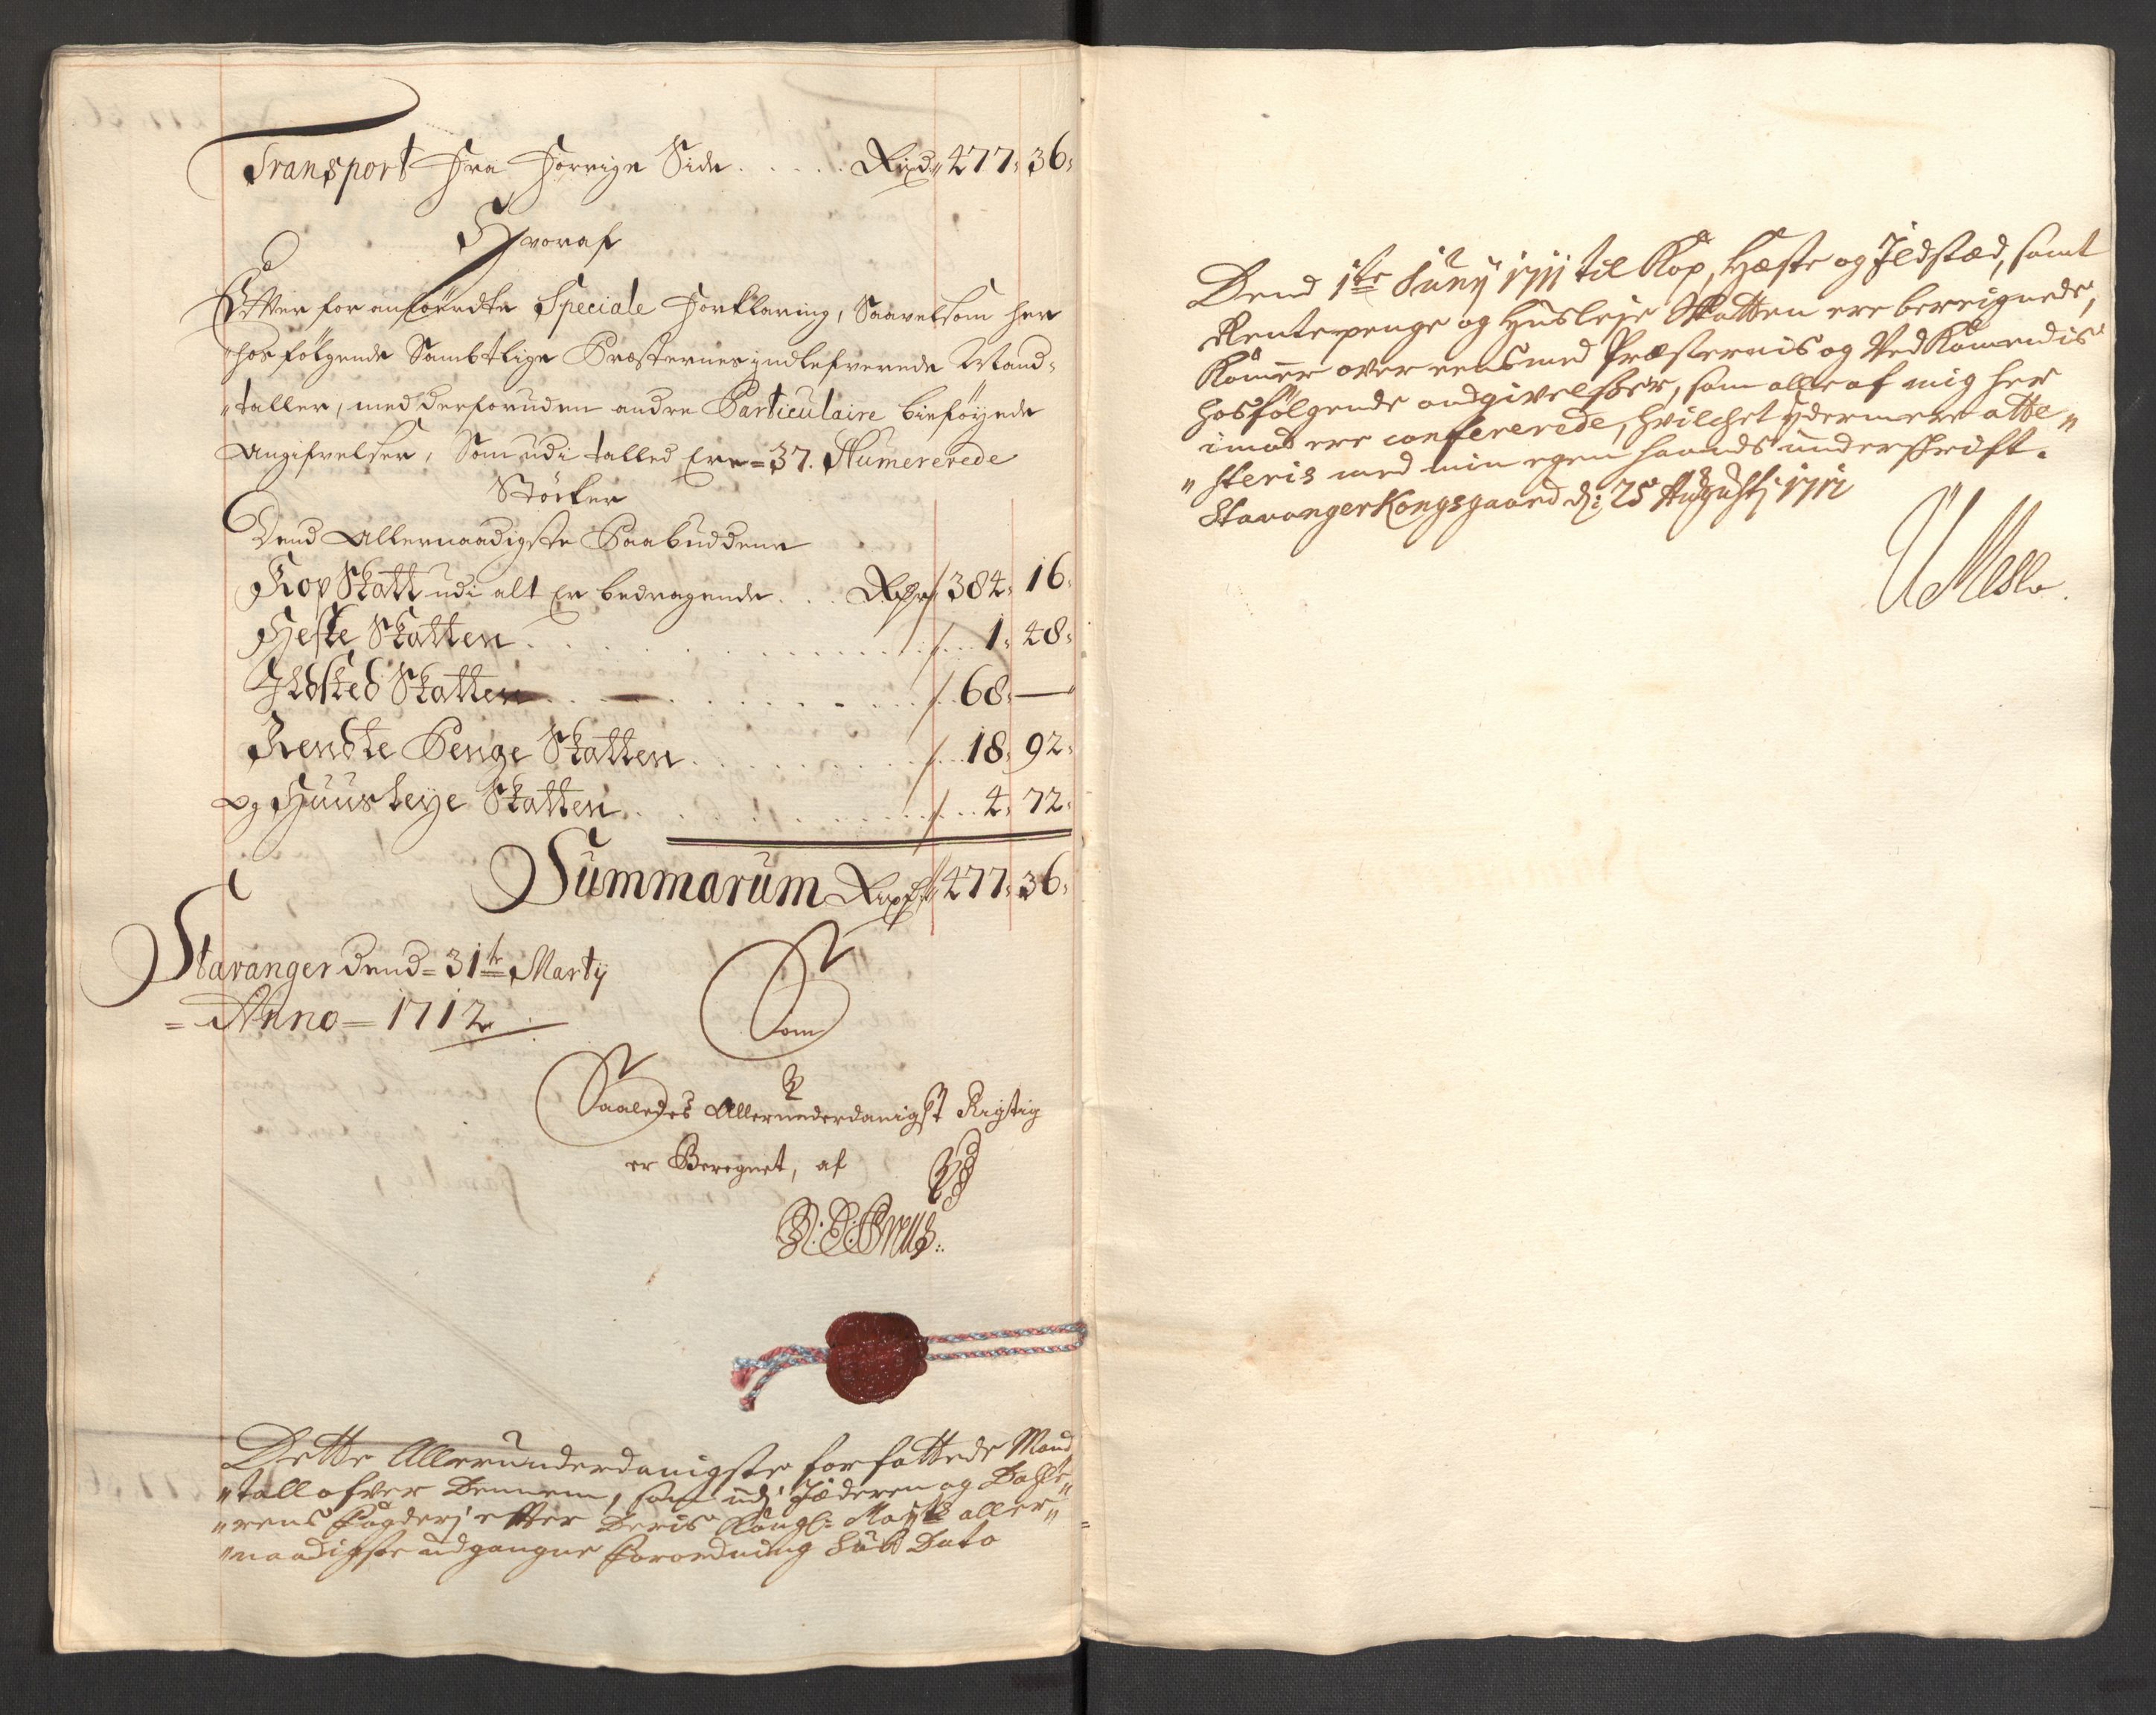 Transport Fra Forrige Side . . . . . Rixd 477: 36:
Hvoraf
Effter for anførdte Speciale Forklaring, Saavelsom her
"hos følgende Sambtlige Præsternes indlefverede Mand-
"taller, med derforuden andre Particulaire bieføyede
Angifvelser, Som udi talled Ere = 37. Numererede
Støcker
Dend Allernaadigste Paabuddene
Kop Skatt udi alt Er bedragende . . . Rdr 384: 16:
Heste Skatten . . . 1: 48:
Ildsted Skatten . . . 68: —
Rendte Penge Skatten . . . 18: 92:
og Huusleye Skatten . . . 4: 72:
Summarum Rixd 477: 36:
Stavanger dend = 31te Marty
= Anno = 1712
Som
Saaledes Allerunderdanigst Rigtig
er Beregnet, af
Dette Allerunderdanigste forfattede Mand
"tall ofver Dennem, som udj Jæderen og Dahle"
"rens Fogderj efter Deris Kongl: Mayts aller"
"naadigste udgangne Forordning Sub Dato
Dend 1te Juny 1711 til Kop, Hæste og Ildstæd, samt
Rentepenge og Husleje Skatten ere bereignede,
Kommer over eens med Præsternis og Vedkommendis
hosfølgende andgivelsser, som alle af mig her
imod ere confererede, hvilchet ydermere atte"
"steris med min egen haands underskrift.
Stavanger Kongsgaard d: 25 Augusti 1712